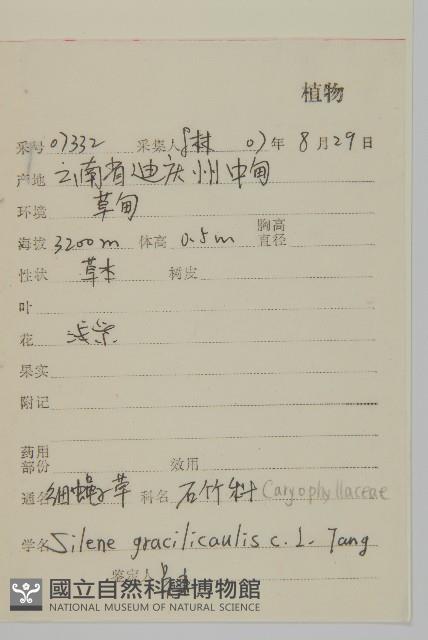 植物
采号 07332 采集人 林 07年 8月29日
产地 云南省迪庆州中甸
环境 草甸
海拔 3200m 体高 0.5m 胸高直径
性状 草本 树皮
叶
花 浅紫
果实
附记
药用部份 效用
通名 细蝇子草 科名 石竹科 Caryophyllaceae
学名 Silene gracilicaulis C. L. Tang
鉴定人
國立自然科學博物館
NATIONAL MUSEUM OF NATURAL SCIENCE